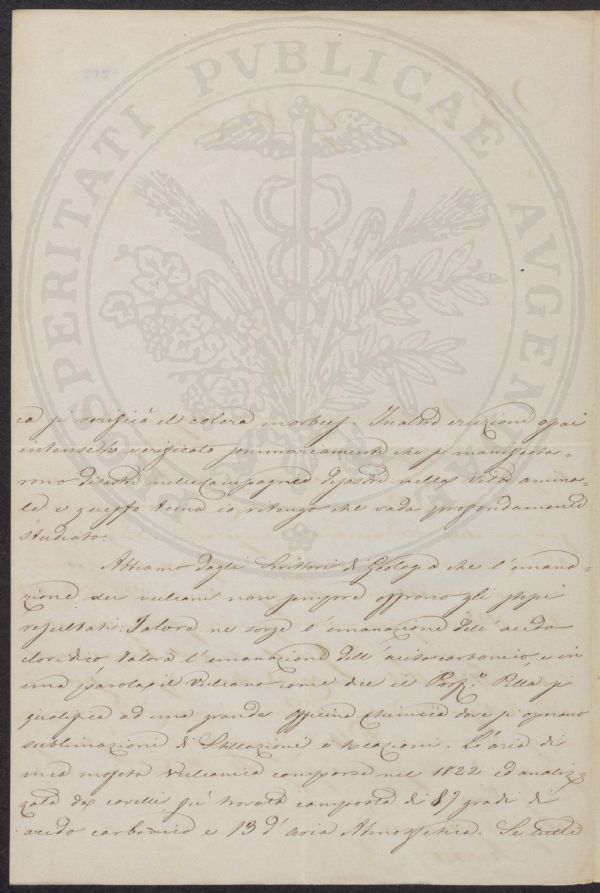 PROSPERITATI PVBLICAE AVGENDAE
ca si verificò il colera morbus. In altre eruzioni assai
intense ho verificato sommariamente che si manifesta-
rono disastri nelle Campagne disastri nella vita anima-
le e questo tema io ritengo che vada profondamente
studiato.
Abbiamo dagli Scrittori di Geologia che l'emana-
zione dei vulcani non sempre offrono gli stessi
resultati: Talora ne sorge l'emanazione dell'acido
cloredico talora l'emanazione dell'acido carbonico, e in
una parola il Vulcano come dice il Prof.r Pilla si
qualifica ad una grande officina Chimica dove si operano
sublimazione di Stillazioni e Reazioni. L'aria di
una mofeta Vulcanica comparsa nel 1822 ed analiz-
zata dal Covelli fu trovata composta di 87 gradi di
acido carbonico e 13 d'aria Atmosferica. Se tutte